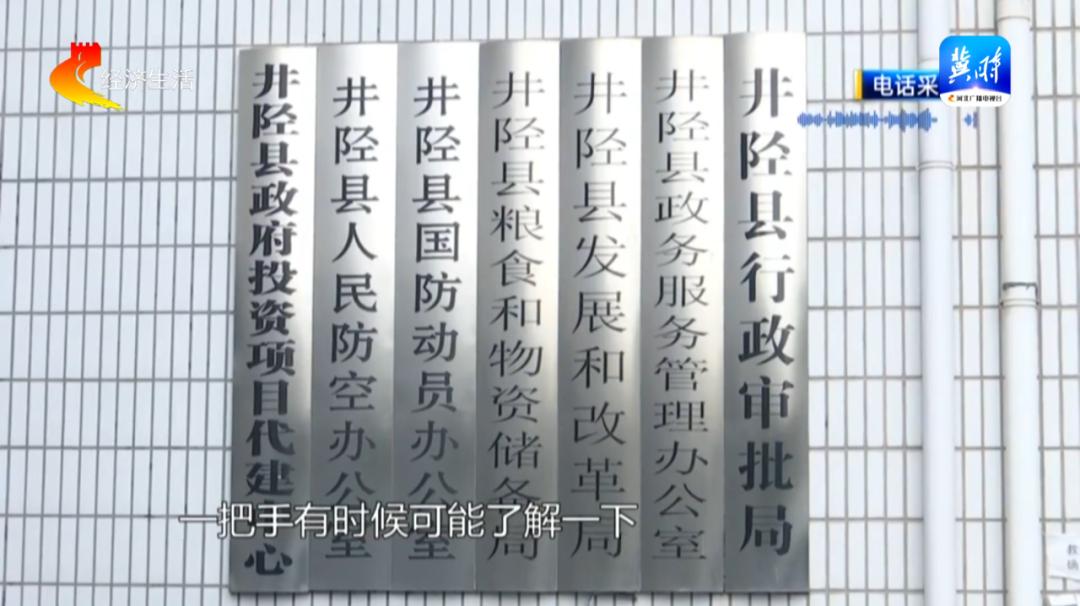 经济生活
电话采
冀时
河北广播电视台
井陉县行政审批局
井陉县政务服务管理办公室
井陉县发展和改革局
井陉县粮食和物资储备局
井陉县国防动员办公室
井陉县人民防空办公室
井陉县政府投资项目代建中心
一把手有时候可能了解一下